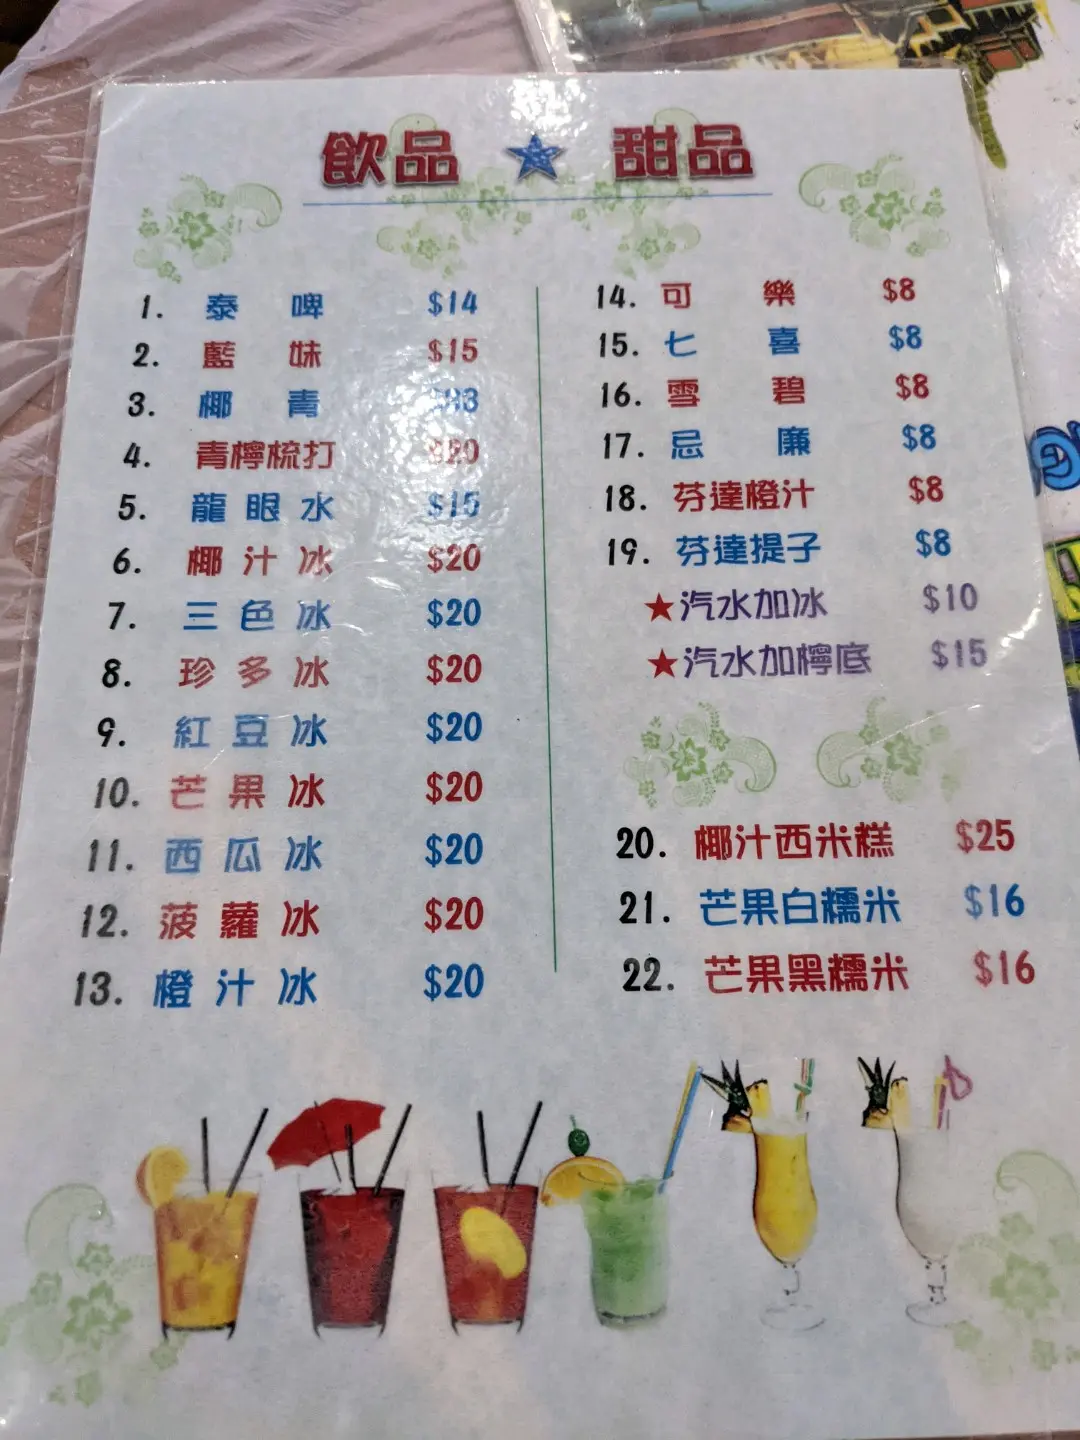 飲品 ★ 甜品
1. 泰啤 $14
2. 藍妹 $15
3. 椰青
4. 青檸梳打 $20
5. 龍眼水 $15
6. 椰汁冰 $20
7. 三色冰 $20
8. 珍多冰 $20
9. 紅豆冰 $20
10. 芒果冰 $20
11. 西瓜冰 $20
12. 菠蘿冰 $20
13. 橙汁冰 $20
14. 可樂 $8
15. 七喜 $8
16. 雪碧 $8
17. 忌廉 $8
18. 芬達橙汁 $8
19. 芬達提子 $8
★汽水加冰 $10
★汽水加檸底 $15
20. 椰汁西米糕 $25
21. 芒果白糯米 $16
22. 芒果黑糯米 $16